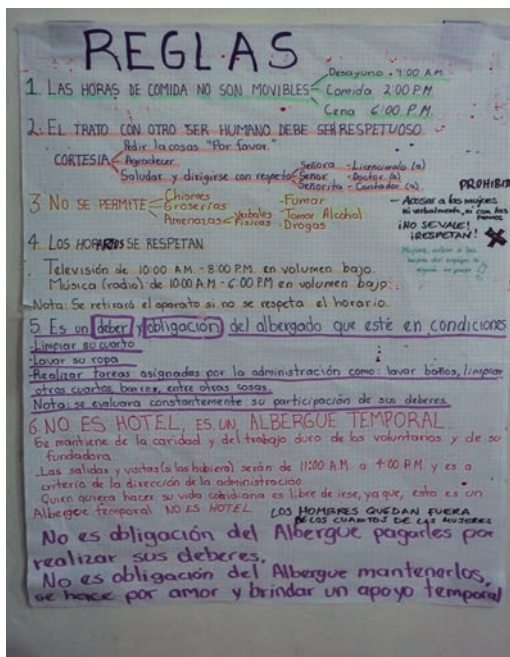 REGLAS
1. LAS HORAS DE COMIDA NO SON MOVIBLES
Desayuno - 9:00 A.M.
Comida 2:00 P.M.
Cena 6:00 P.M.
2. EL TRATO CON OTRO SER HUMANO DEBE SER RESPETUOSO.
CORTESIA
Pedir la cosas "Por favor"
Agradecer
Saludar y dirigirse con respeto
Señora - Licenciado (a)
Señor - Doctor (a)
Señorita - Contador (a)
3 NO SE PERMITE
Chismes
Groserias
Amenazas
Verbales
Fisicas
- Fumar
- Tomar Alcohol
- Drogas
PROHIBI
- Acosar a las mujeres
ni verbalmente, ni con las
manos
¡NO SE VALE!
¡RESPETAN!
4. LOS HORARIOS SE RESPETAN
Televisión de 10:00 A.M. - 8:00 P.M. en volumen bajo.
Música (radio) de 10:00 A.M - 6:00 P.M en volumen bajo.
Nota: Se retirará el aparato si no se respeta el horario.
5. Es un deber y obligación del albergado que esté en condiciones
-Limpiar su cuarto
-Lavar su ropa
-Realizar tareas asignadas por la administración como: lavar baños, limpiar
otros cuartos barrer, entre otras cosas.
Nota: se evaluara constantemente su participación de sus deberes
6. NO ES HOTEL, ES UN ALBERGUE TEMPORAL.
Se mantiene de la caridad y del trabajo duro de los voluntarios y de su
fundadora.
-Las salidas y visitas (si las hubiera) serán de 11:00 A.M. a 4:00 P.M. y es a
criterio de la dirección de la administración
Quien quiera hacer su vida cotidiana es libre de irse, ya que, esto es un
Albergue temporal NO ES HOTEL
LOS HOMBRES QUEDAN FUERA
DE LOS CUARTOS DE LAS MUJERES
No es obligación del Albergue pagarles por
realizar sus deberes.
No es obligación del Albergue mantenerlos,
se hace por amor y brindar un apoyo temporal